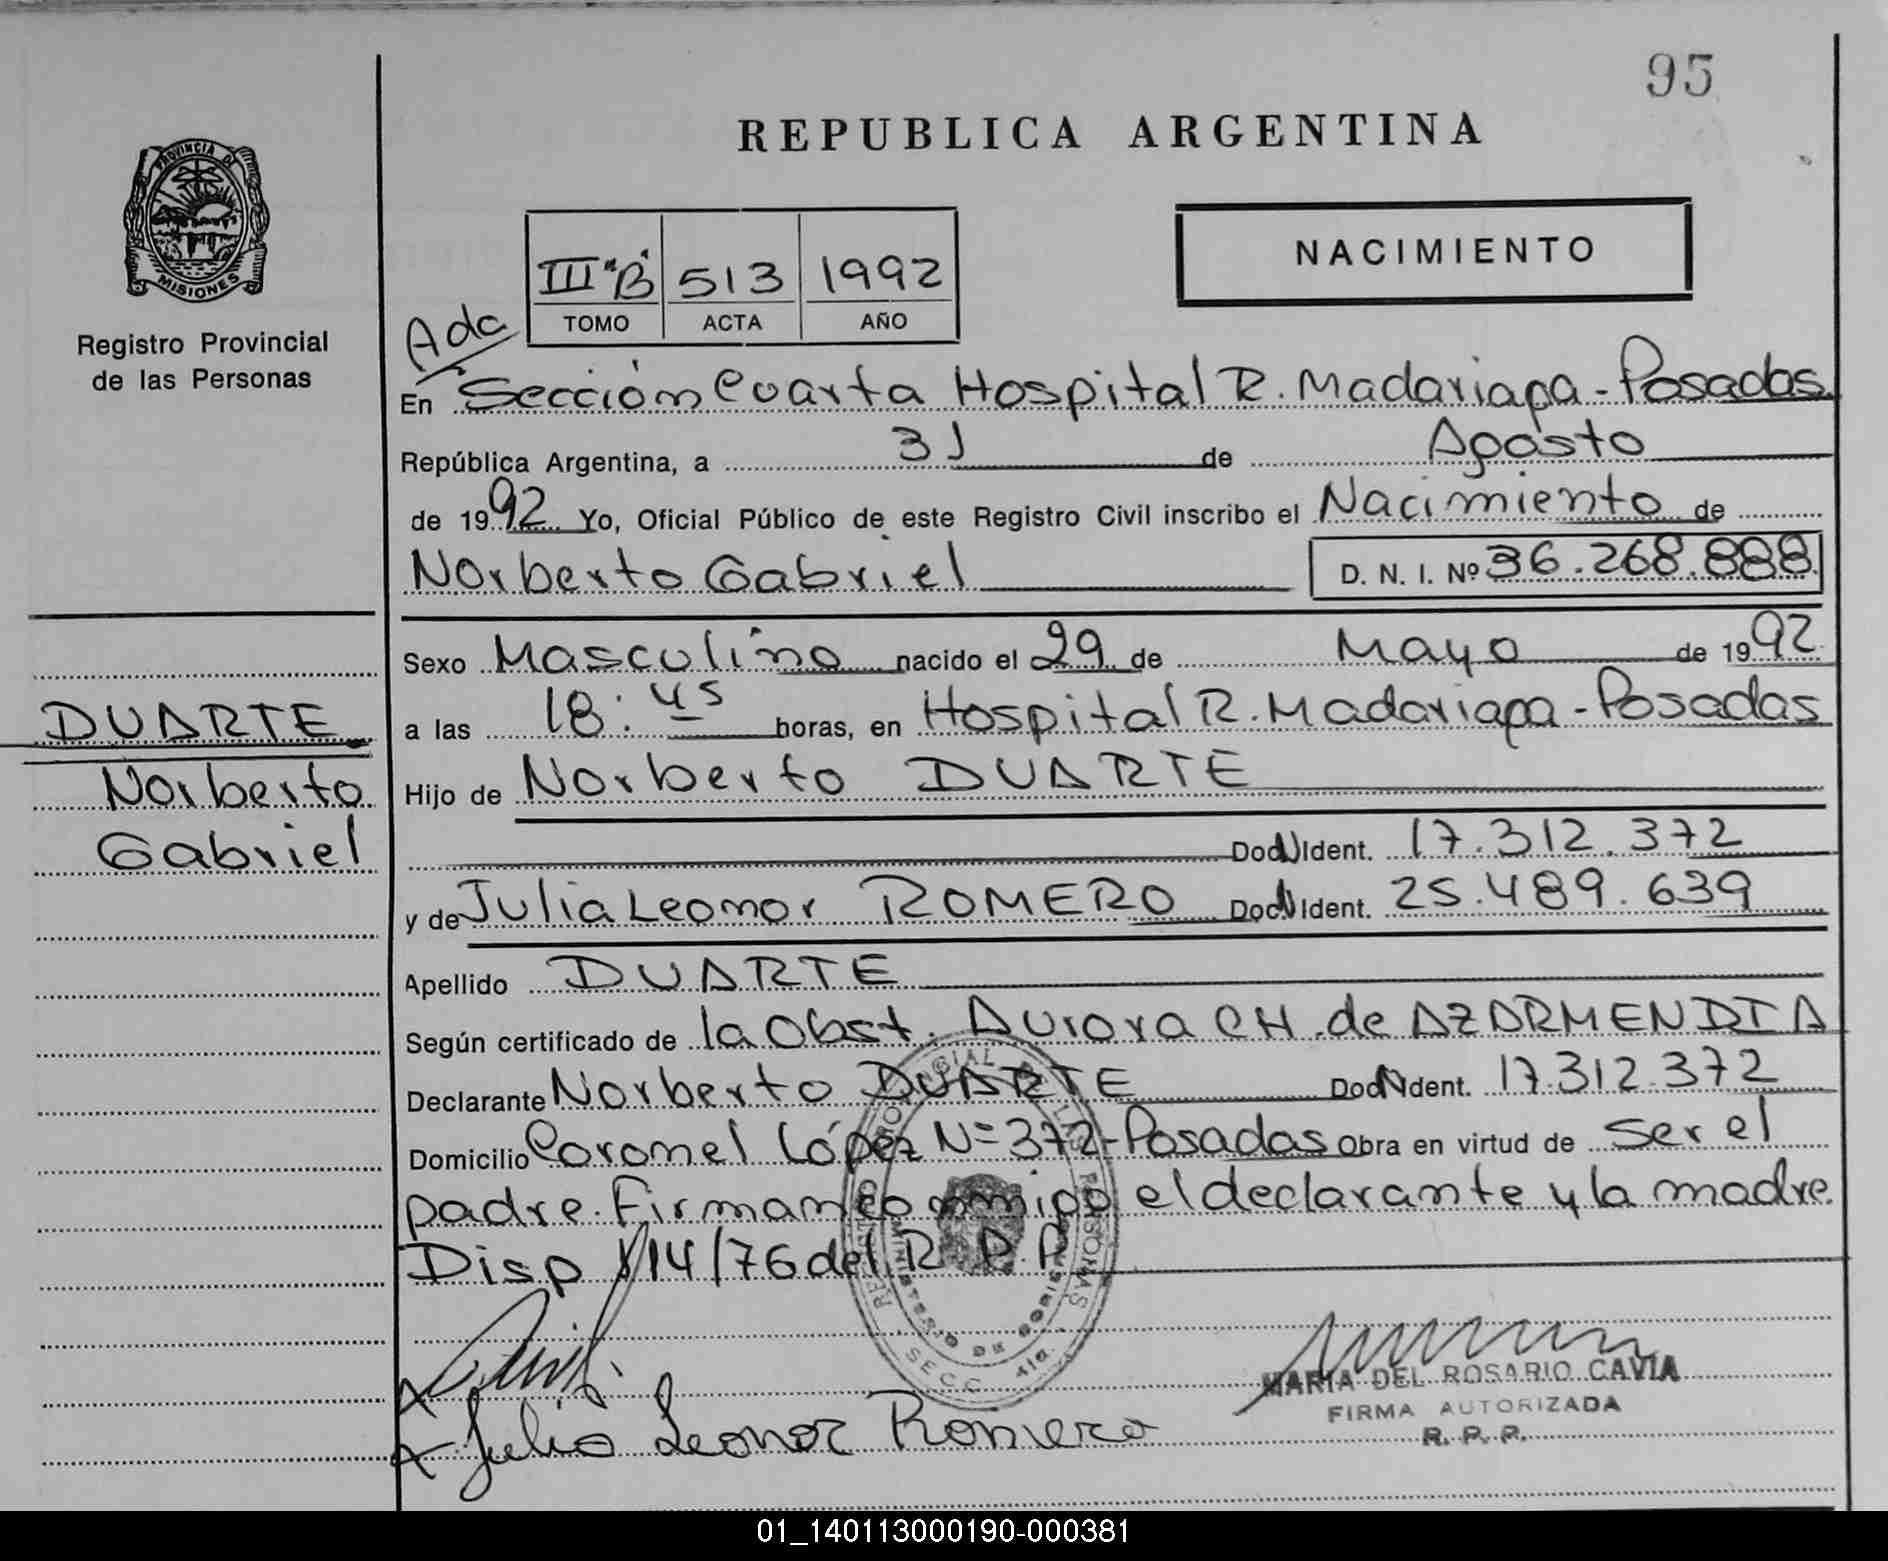 95
REPUBLICA ARGENTINA
PROVINCIA DE
MISIONES
Registro Provincial
de las Personas
NACIMIENTO
III "B" 513 1992
TOMO ACTA AÑO
Ada
En Sección Cuarta Hospital R. Madariaga - Posadas
República Argentina, a 31 de Agosto
de 1992 Yo, Oficial Público de este Registro Civil inscribo el Nacimiento de
Norberto Gabriel D. N. I. Nº 36.268.888
Sexo Masculino nacido el 29 de Mayo de 1992
DUARTE
Norberto
Gabriel
a las 18:45 horas, en Hospital R. Madariaga - Posadas
Hijo de Norberto DUARTE
Doc N Ident. 17.312.372
y de Julia Leonor ROMERO Doc N Ident. 25.489.639
Apellido DUARTE
Según certificado de la Obst. Aurora CH. de AZARMENDIA
Declarante Norberto DUARTE Doc N Ident. 17.312.372
Domicilio Coronel López Nº 372 - Posadas Obra en virtud de ser el
padre. Firman conmigo el declarante y la madre.
Disp 114/76 del R. P. P.
MINISTERIO DE GOBIERNO
SECC. 4ta.
MARIA DEL ROSARIO CAVIA
FIRMA AUTORIZADA
R. P. P.
Julia Leonor Romero
01_140113000190-000381